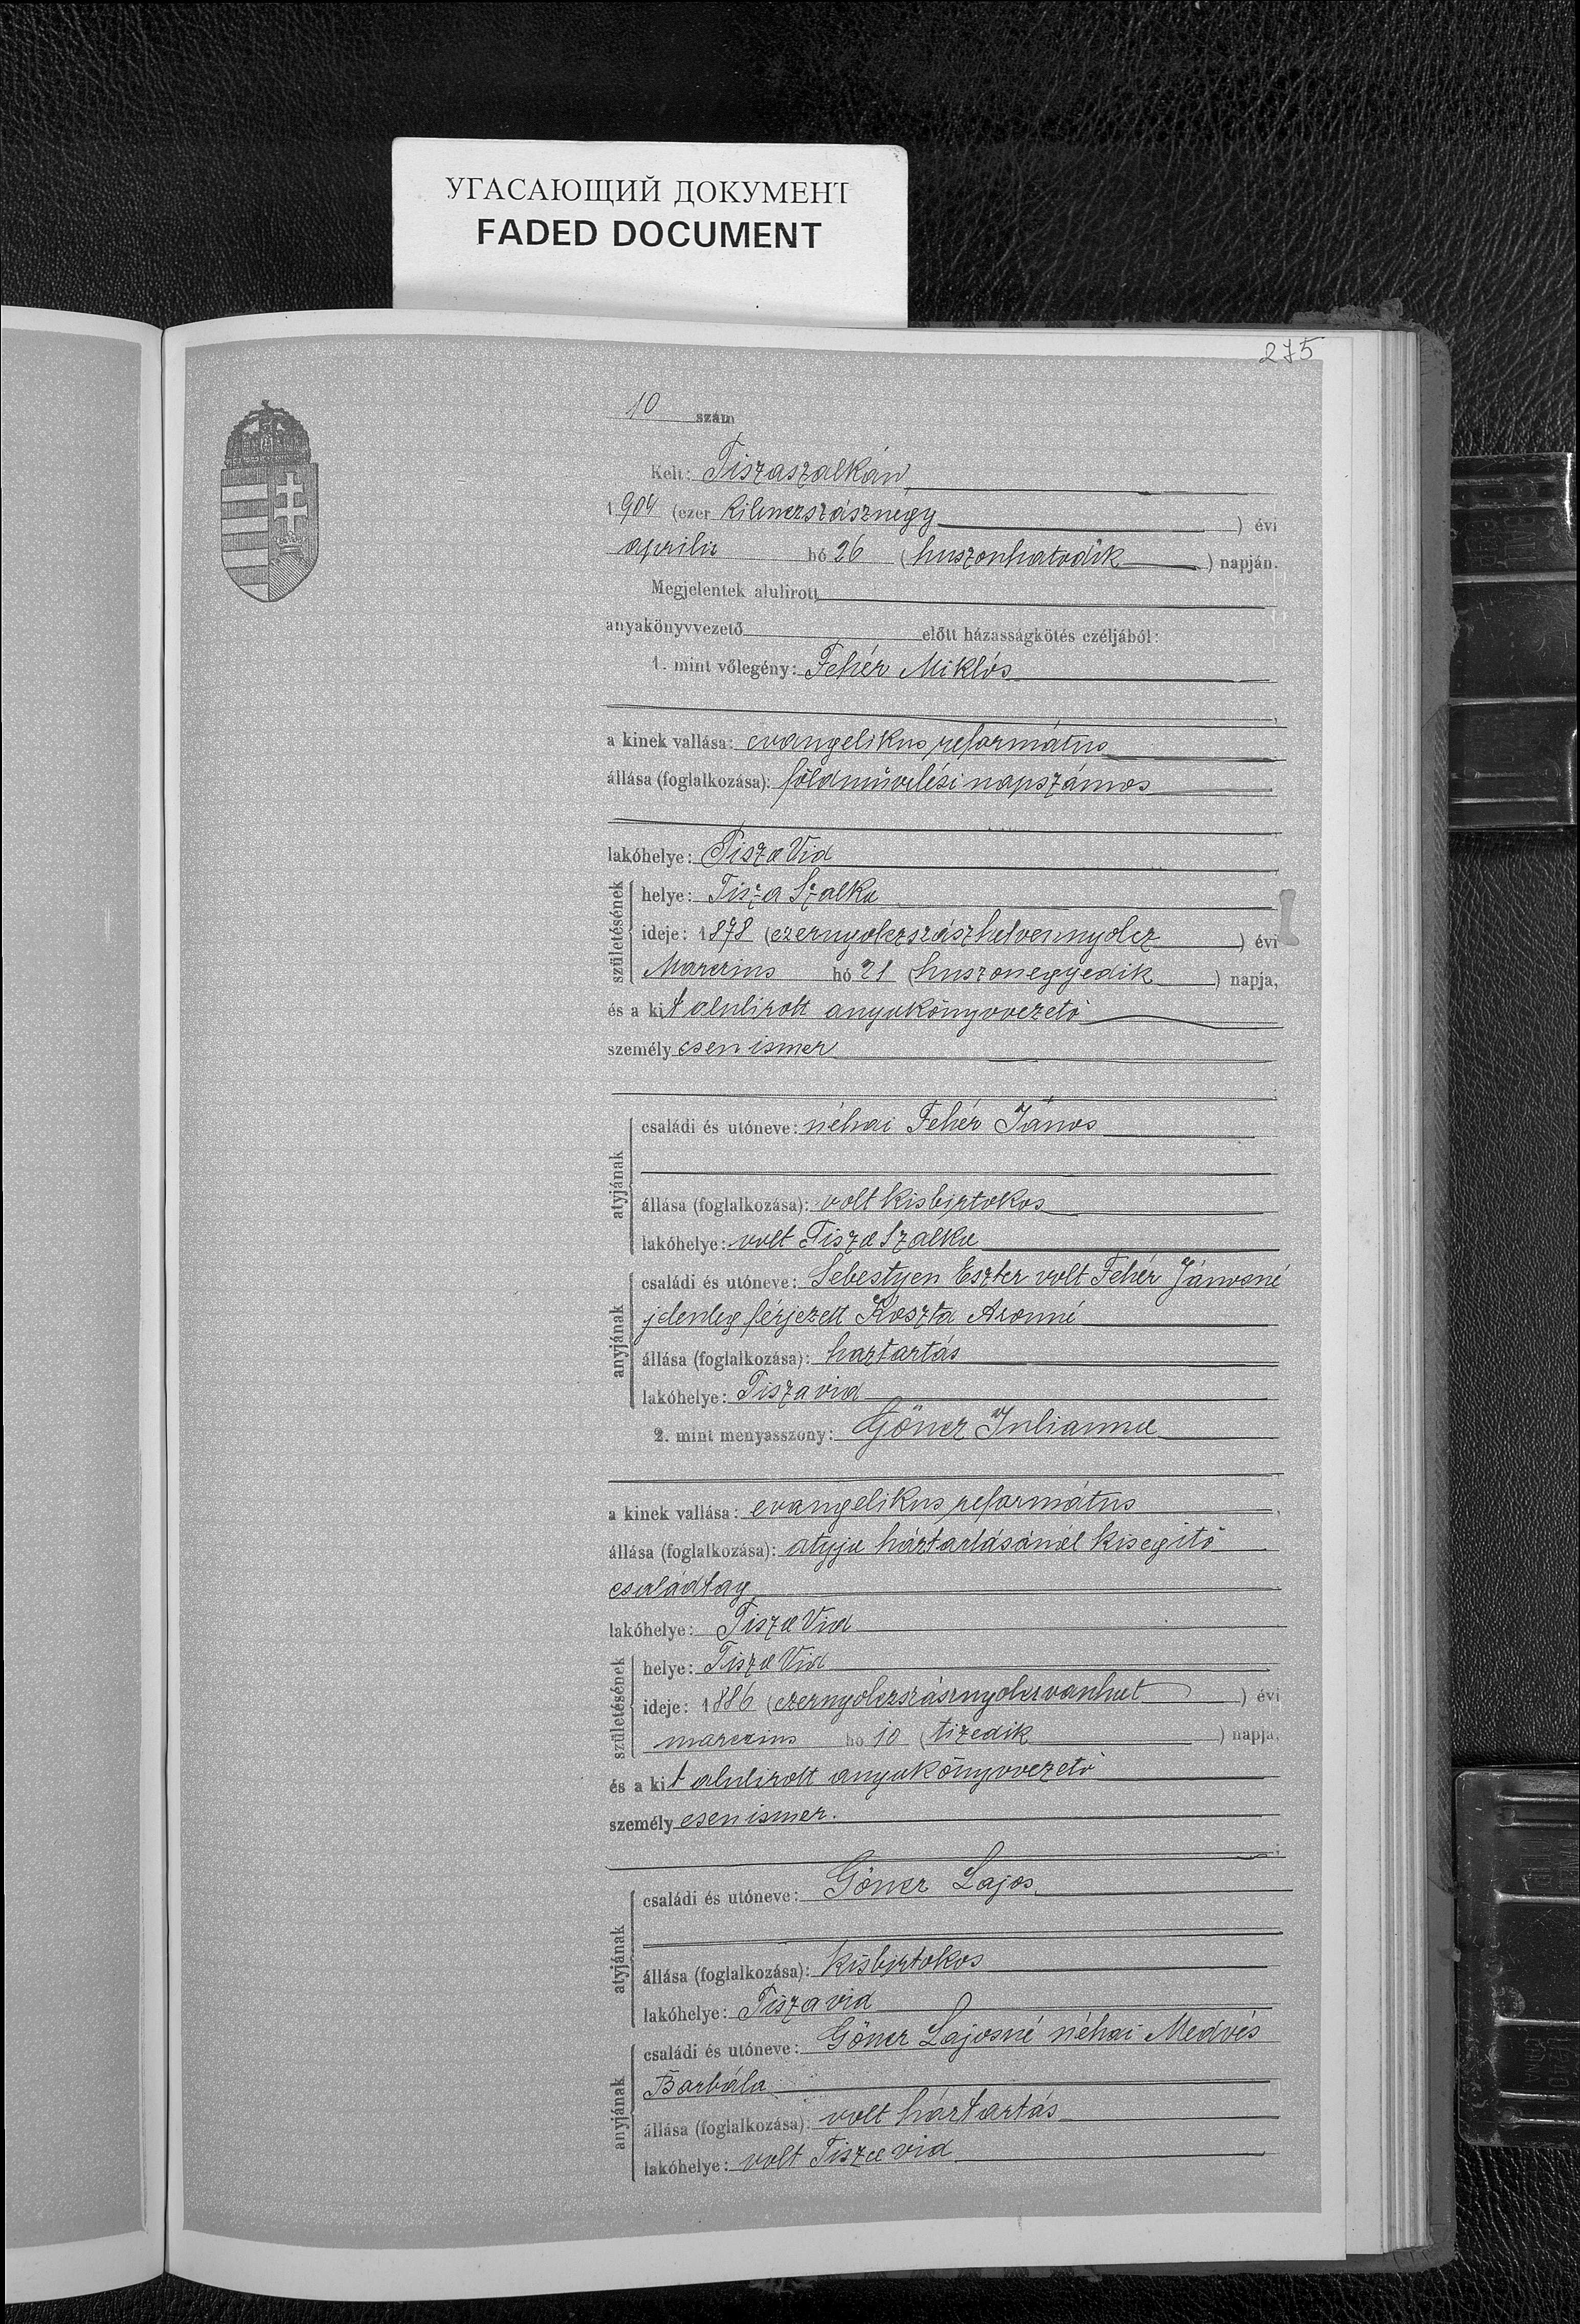 УГАСАЮЩИЙ ДОКУМЕНТ
FADED DOCUMENT
275
10 szám
Kelt: Tiszaszalkán
1904 (ezer kilenczszásznegy ) évi
április hó 26 (huszonhatodik ) napján.
Megjelentek alulirott
anyakönyvvezető előtt házasságkötés czéljából:
1. mint vőlegény: Fehér Miklós
a kinek vallása: evangelikus református
állása (foglalkozása): földmüvelési napszámos
lakóhelye: Tisza Vid
születésének
helye: Tisza Szalka
ideje: 1878 (ezernyolczszászhetvennyolcz ) évi
Marczius hó 21 (huszonegyedik ) napja,
és a kit alulirott anyakönyvvezető
személyesen ismer
atyjának
családi és utóneve: néhai Fehér János
állása (foglalkozása): volt kisbirtokos
lakóhelye: volt Tisza Szalka
anyjának
családi és utóneve: Sebestyen Eszter volt Fehér Jánosné
jelenleg férjezett Koszta Aronné
állása (foglalkozása): haztartás
lakóhelye: Tiszavid
2. mint menyasszony: Göncz Julianna
a kinek vallása: evangelikus református
állása (foglalkozása): atyja háztartásánál kisegitö
családtag
lakóhelye: Tisza Vid
születésének
helye: Tisza Vid
ideje: 1886 (ezernyolczszásznyolczvanhat ) évi
marczius hó 10 (tizedik ) napja,
és a kit alulirott anyakönyvvezető
személyesen ismer.
atyjának
családi és utóneve: Göncz Lajos
állása (foglalkozása): kisbirtokos
lakóhelye: Tiszavid
anyjának
családi és utóneve: Göncz Lajosné néhai Medvés
Barbála
állása (foglalkozása): volt háztartás
lakóhelye: volt Tiszavid